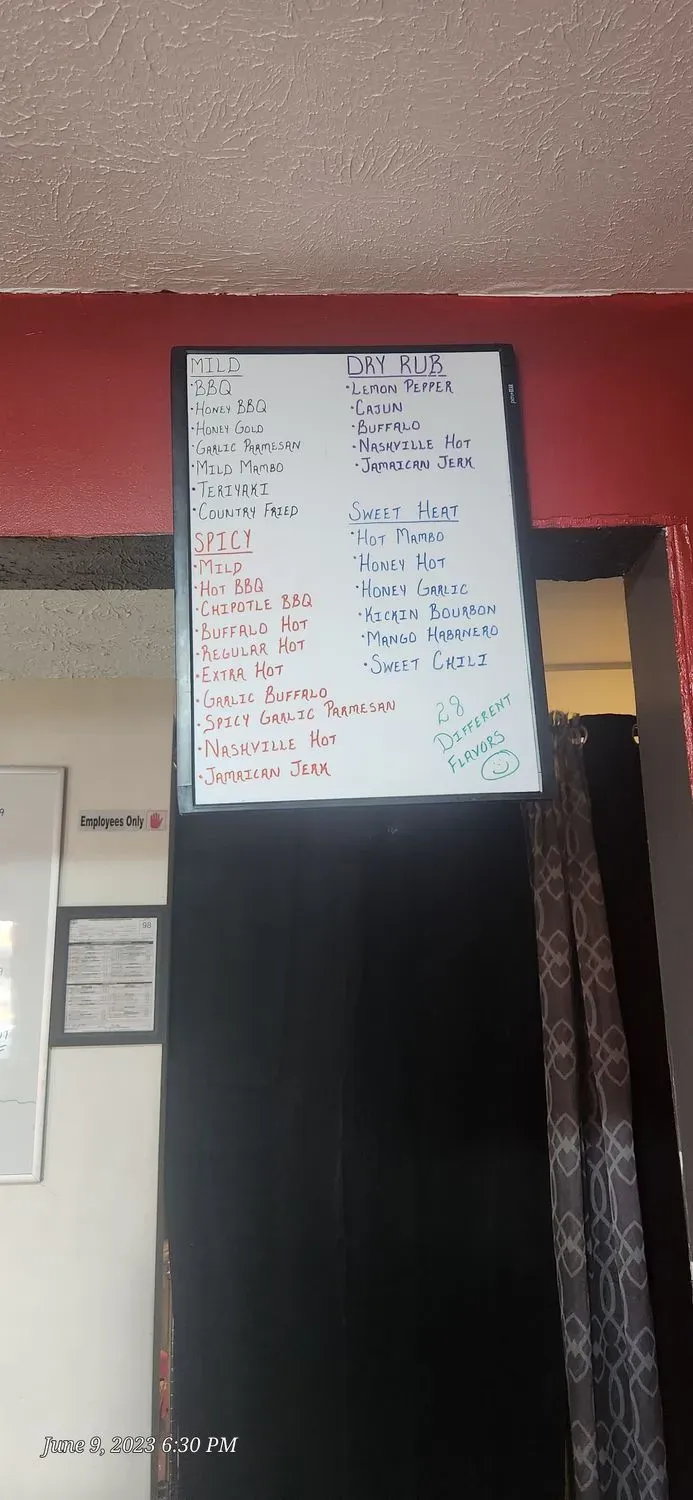 MILD
• BBQ
• HONEY BBQ
• HONEY GOLD
• GARLIC PARMESAN
• MILD MAMBO
• TERIYAKI
• COUNTRY FRIED
SPICY
• MILD
• HOT BBQ
• CHIPOTLE BBQ
• BUFFALO HOT
• REGULAR HOT
• EXTRA HOT
• GARLIC BUFFALO
• SPICY GARLIC PARMESAN
• NASHVILLE HOT
• JAMAICAN JERK
DRY RUB
• LEMON PEPPER
• CAJUN
• BUFFALO
• NASHVILLE HOT
• JAMAICAN JERK
SWEET HEAT
• HOT MAMBO
• HONEY HOT
• HONEY GARLIC
• KICKIN BOURBON
• MANGO HABANERO
• SWEET CHILI
28
DIFFERENT
FLAVORS
Employees Only
98
June 9, 2023 6:30 PM